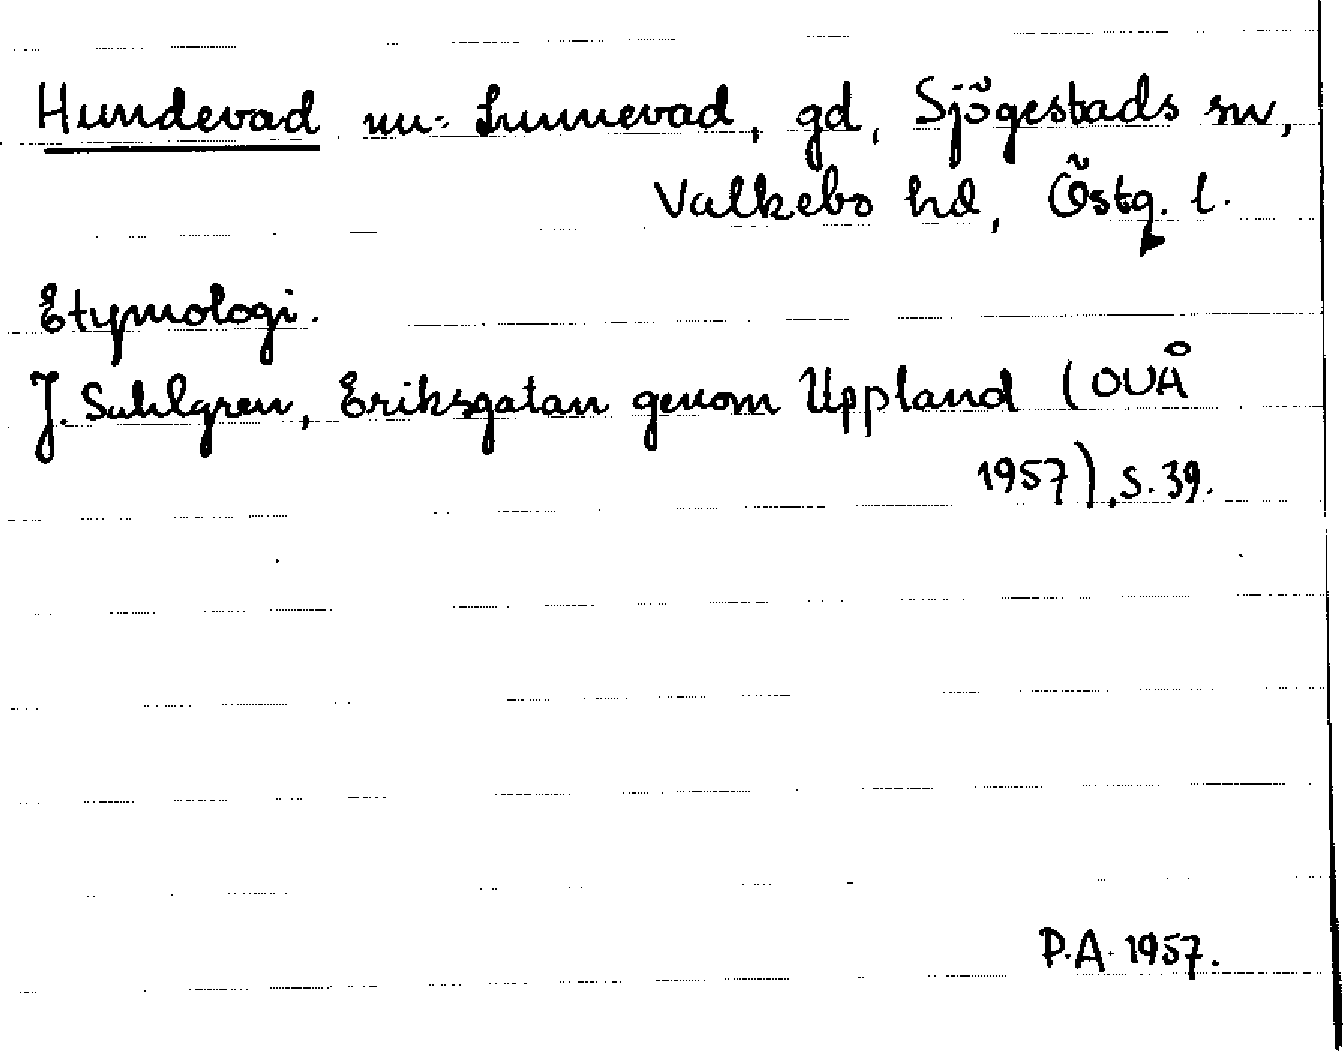 Hundevad nu: Lunnevad, gd, Sjögestads sn,
Valkebo hd, Östg. l.
Etymologi.
J. Sahlgren, Eriksgatan genom Uppland (OUÅ
1957), s. 39.
P.A. 1957.